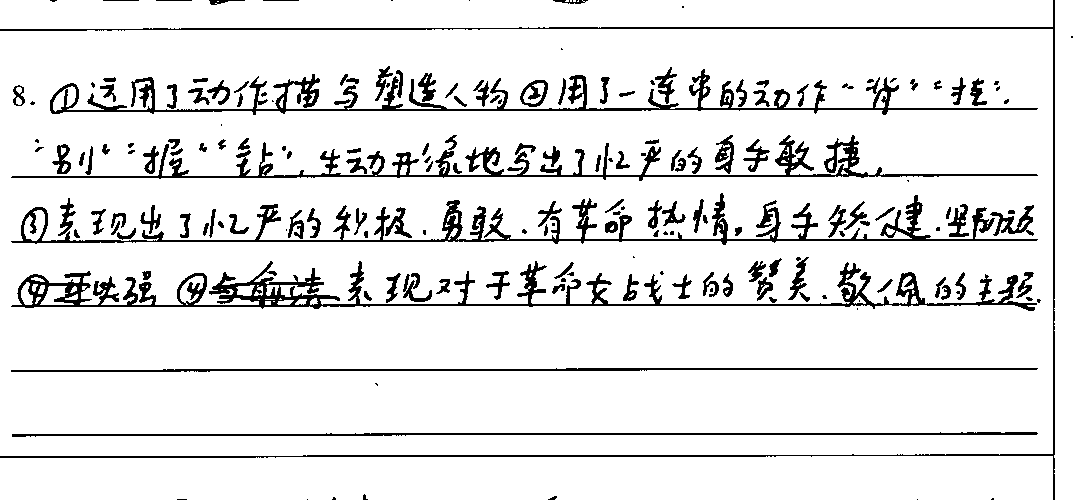 8. ①运用了动作描写塑造人物②用了一连串的动作“背”“挂”.
“别”“握”“钻”,生动形象地写出了忆严的身手敏捷,
③表现出了忆严的积极、勇敢、有革命热情。身手矫健.坚韧顽
强 ④ 表现对于革命女战士的赞美、敬佩的主题.